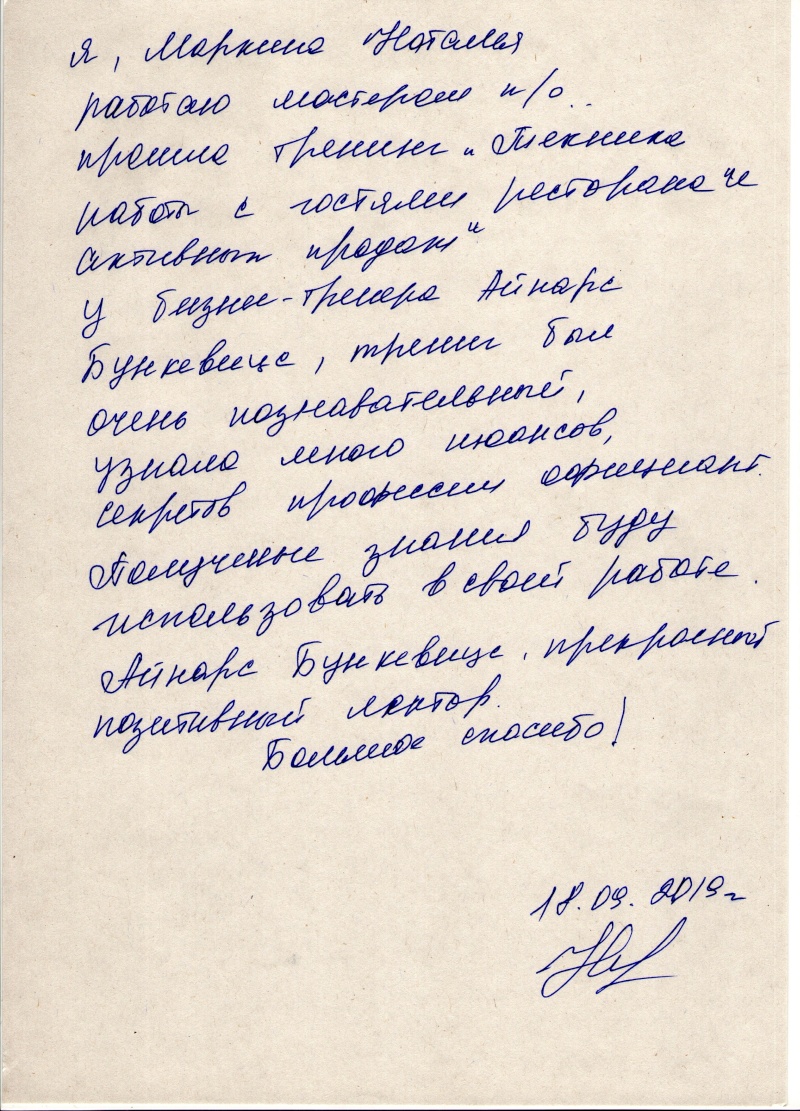 Я, Маркина Наталья
работаю мастером п/о.
прошла тренинг „Техника
работы с гостями ресторана" и
активных продаж"
у бизнес-тренера Айнарс
Бункевицс, тренинг был
очень познавательный,
узнала много нюансов,
секретов профессии официант.
Полученные знания буду
использовать в своей работе.
Айнарс Бункевицс, прекрасный
позитивный лектор.
Большое спасибо!
18.09.2019г